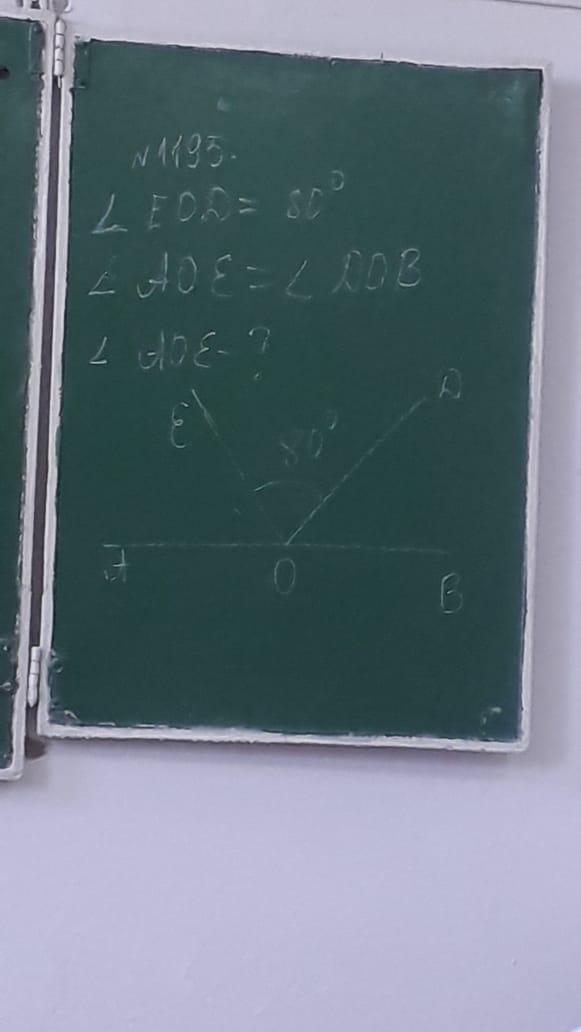 N1195.
∠ EOD = 80°
∠ AOE = ∠ DOB
∠ AOE - ?
E
D
80°
A
O
B